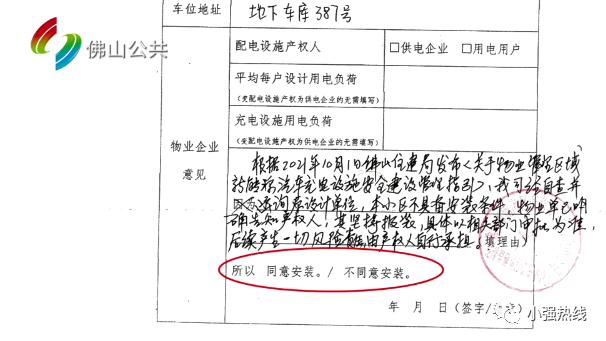 车位地址 地下车库387号
佛山公共
配电设施产权人 □供电企业 □用电用户
平均每户设计用电负荷
(变配电设施产权为供电企业的无需填写)
充电设施用电负荷
(变配电设施产权为供电企业的无需填写)
物业企业
意见
根据2021年10月1日佛山住建局发布《关于物业管理区域
新能源汽车充电设施安全建设管理指引》,我司经自查并
咨询原设计单位,本小区不具备安装条件,物业单已明
确告知产权人,其坚持报装,具体以相关部门审批为准,
后续产生一切风险由产权人自行承担。(填理由)
所以 同意安装。/ 不同意安装。
年 月 日 (签字/
小强热线